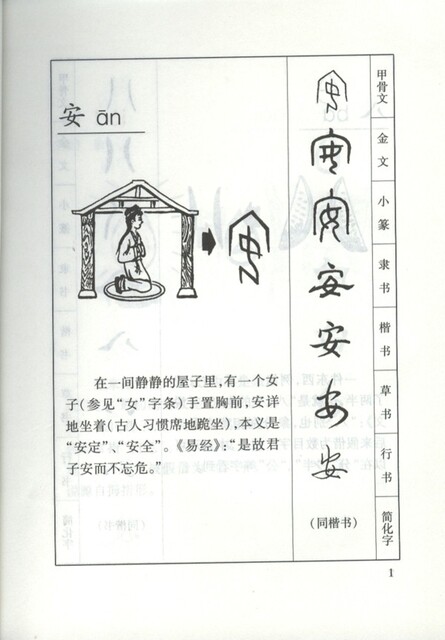 安 ān
在一间静静的屋子里，有一个女
子（参见“女”字条）手置胸前，安详
地坐着（古人习惯席地跪坐），本义是
“安定”、“安全”。《易经》：“是故君
子安而不忘危。”
安
安
安
安
安
安
安
（同楷书）
甲骨文
金文
小篆
隶书
楷书
草书
行书
简化字
1